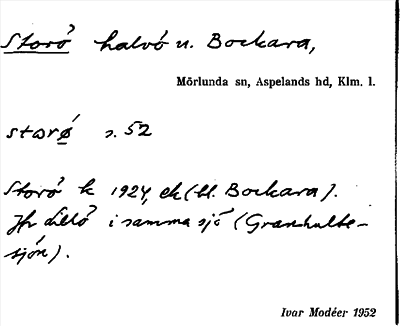 Storö halvö u. Bockara,
Mörlunda sn, Aspelands hd, Klm. l.
storø s. 52
Storö k 1924, ek (til Bockara).
Jfr Lillö i samma sjö (Granhulte-
sjön).
Ivar Modéer 1952